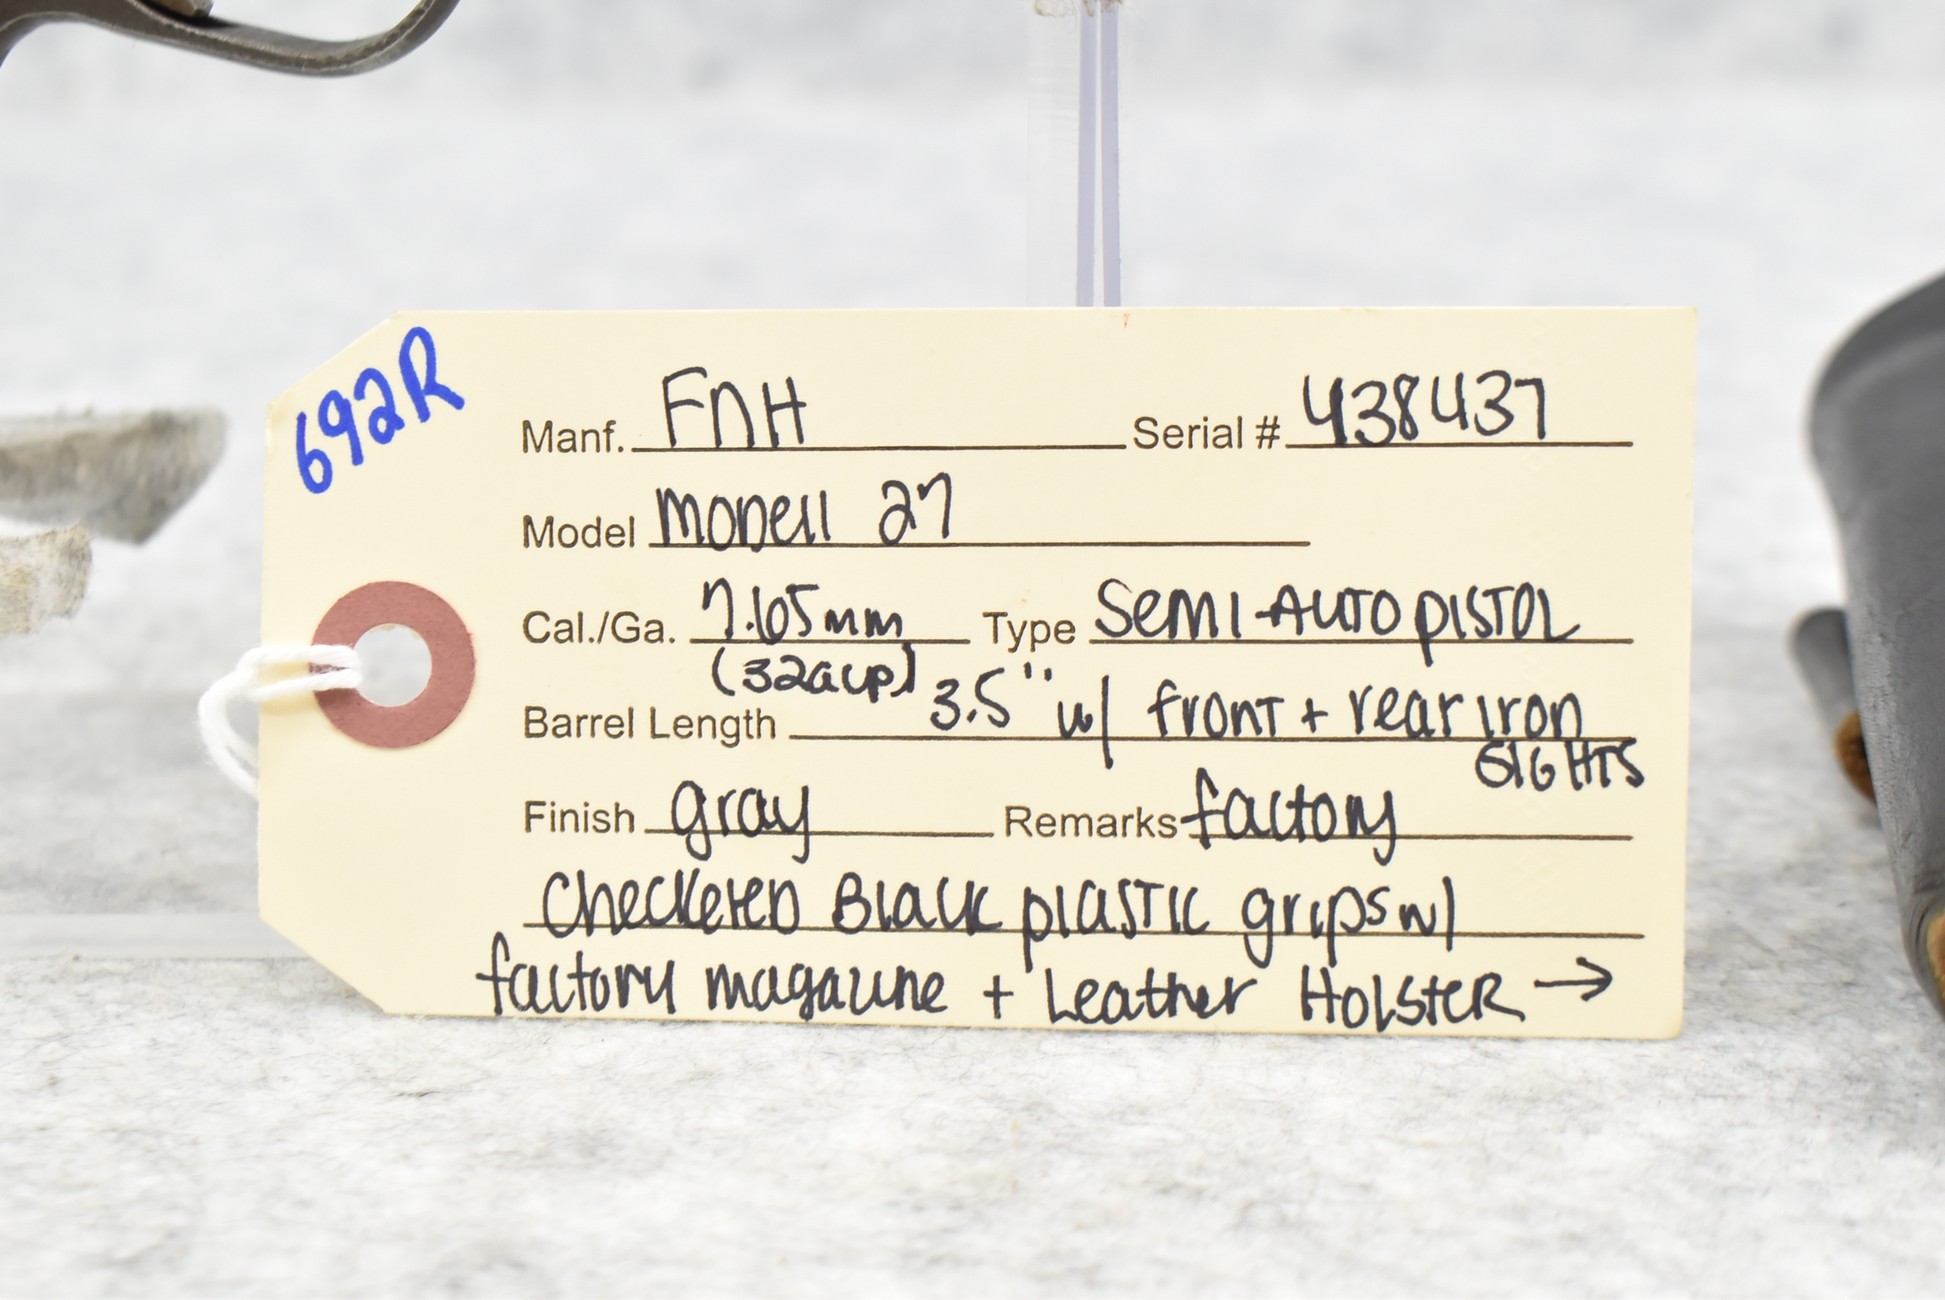 692R
Manf. FNH Serial # 438437
Model Modell 27
Cal./Ga. 7.65mm Type Semi-Auto Pistol
(32acp)
Barrel Length 3.5" w/ front + rear iron
SIGHTS
Finish gray Remarks factory
Checkered Black plastic grips w/
factory magazine + Leather Holster →